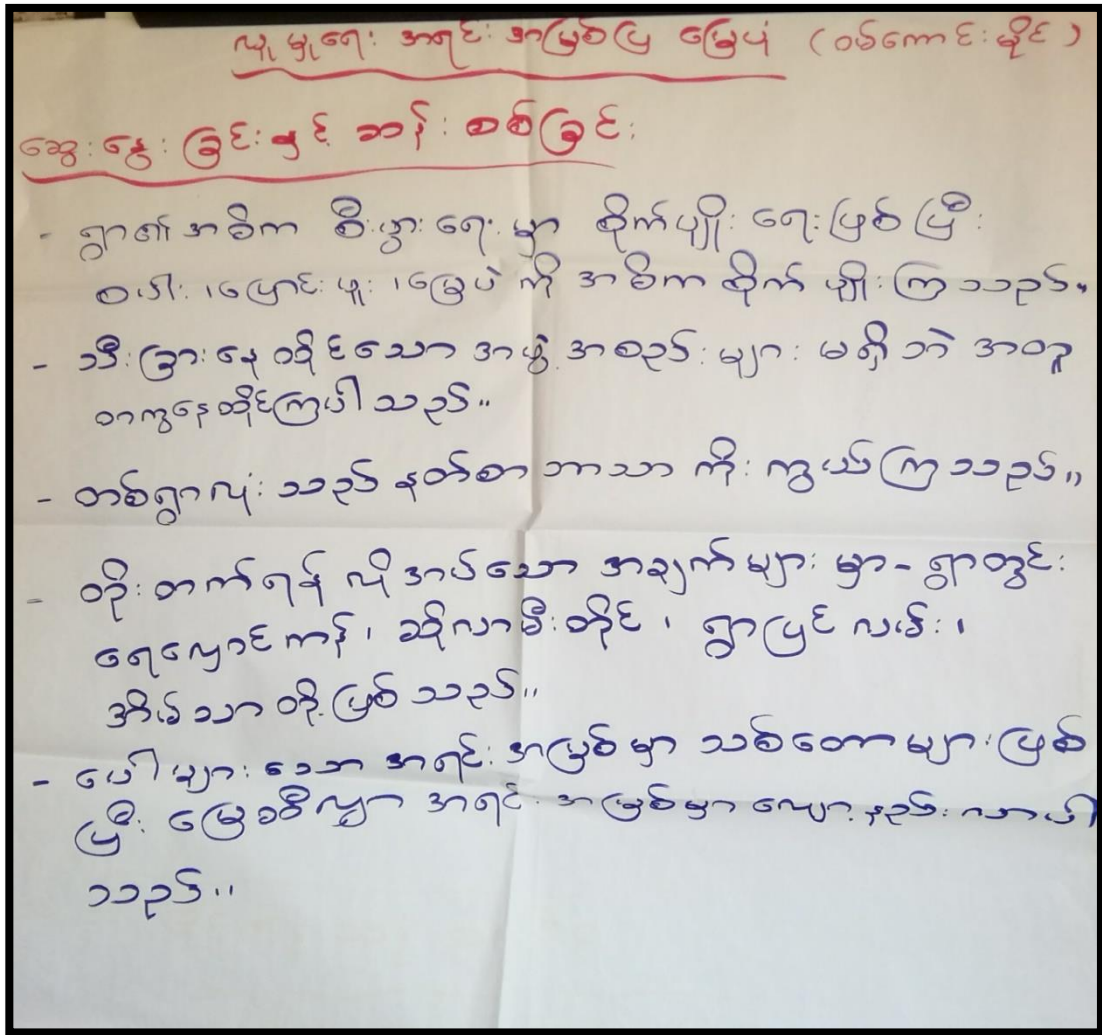 လူမှုရေး အရင်းအမြစ်ပြ မြေပုံ (ဝမ်ကောင်းမိုင်)
ဆွေးနွေးခြင်းနှင့် ဆန်းစစ်ခြင်း
- ရွာ၏အဓိက စီးပွားရေးမှာ စိုက်ပျိုးရေးဖြစ်ပြီး
စပါး၊ ပြောင်းဖူး၊ မြေပဲ ကို အဓိက စိုက်ပျိုးကြသည်။
- သီးခြားနေထိုင်သော အဖွဲ့အစည်းများ မရှိဘဲ အတူ
တကွနေထိုင်ကြပါသည်။
- တစ်ရွာလုံးသည် နတ်စာ ဘာသာ ကိုးကွယ်ကြသည်။
- တိုးတက်ရန် လိုအပ်သော အချက်များမှာ - ရွာတွင်း
ရေလှောင်ကန်၊ ဆိုလာမီးတိုင်၊ ရွာပြင်လမ်း၊
အိမ်သာ တို့ဖြစ်သည်။
- ပေါများသော အရင်းအမြစ်မှာ သစ်တောများဖြစ်
ပြီး မြေဩဇီလွှာ အရင်းအမြစ်မှာ လျော့နည်းလာပါ
သည်။